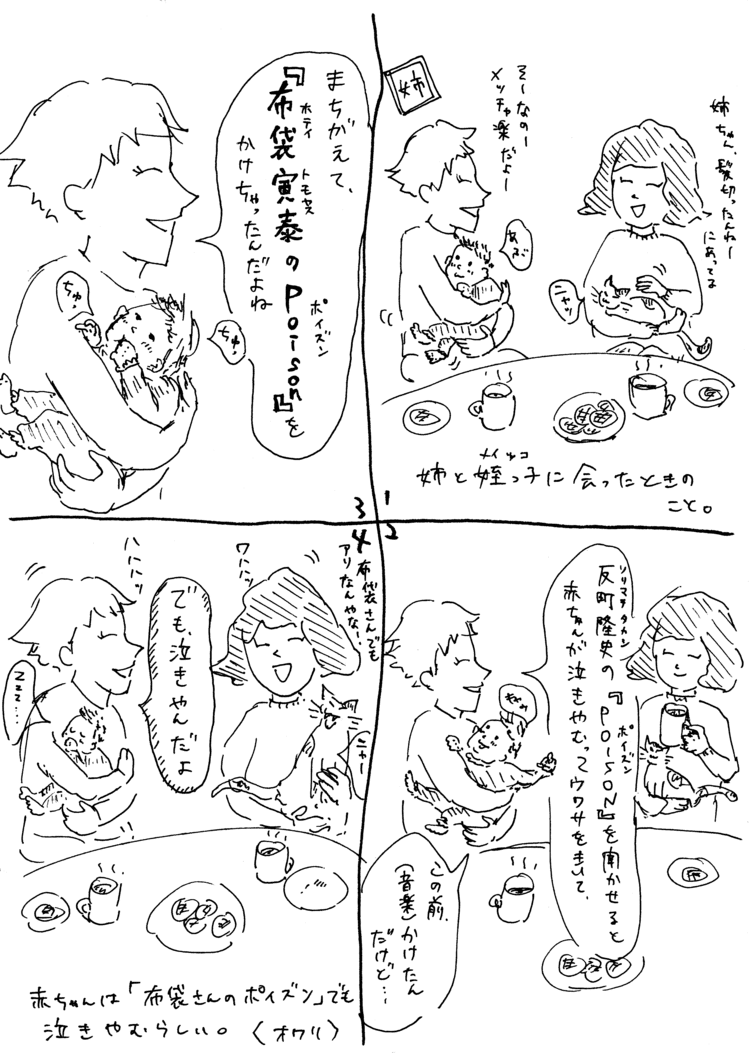 姉
姉ちゃん、髪切ったんねー
にあってる
そーなのー
メッチャ楽だよー
あぶ
ニャッ
姉と姪っ子に会ったときの
メイッコ
こと。
1
2
反町隆史の『POISON』を聞かせると
ソリマチ タカシ
ポイズン
赤ちゃんが泣きやむってウワサをきいて、
この前、
(音楽)かけたん
だけど…
3
まちがえて、
『布袋寅泰のPoison』を
ホテイ トモヤス
ポイズン
かけちゃったんだよね
ちゅ
ちゅ
4
布袋さんでも
アリなんやな!、
ワハハッ
ハハハッ
でも、泣きやんだよ
Zzz…
ニャー
赤ちゃんは「布袋さんのポイズン」でも
泣きやむらしい。〈オワリ〉